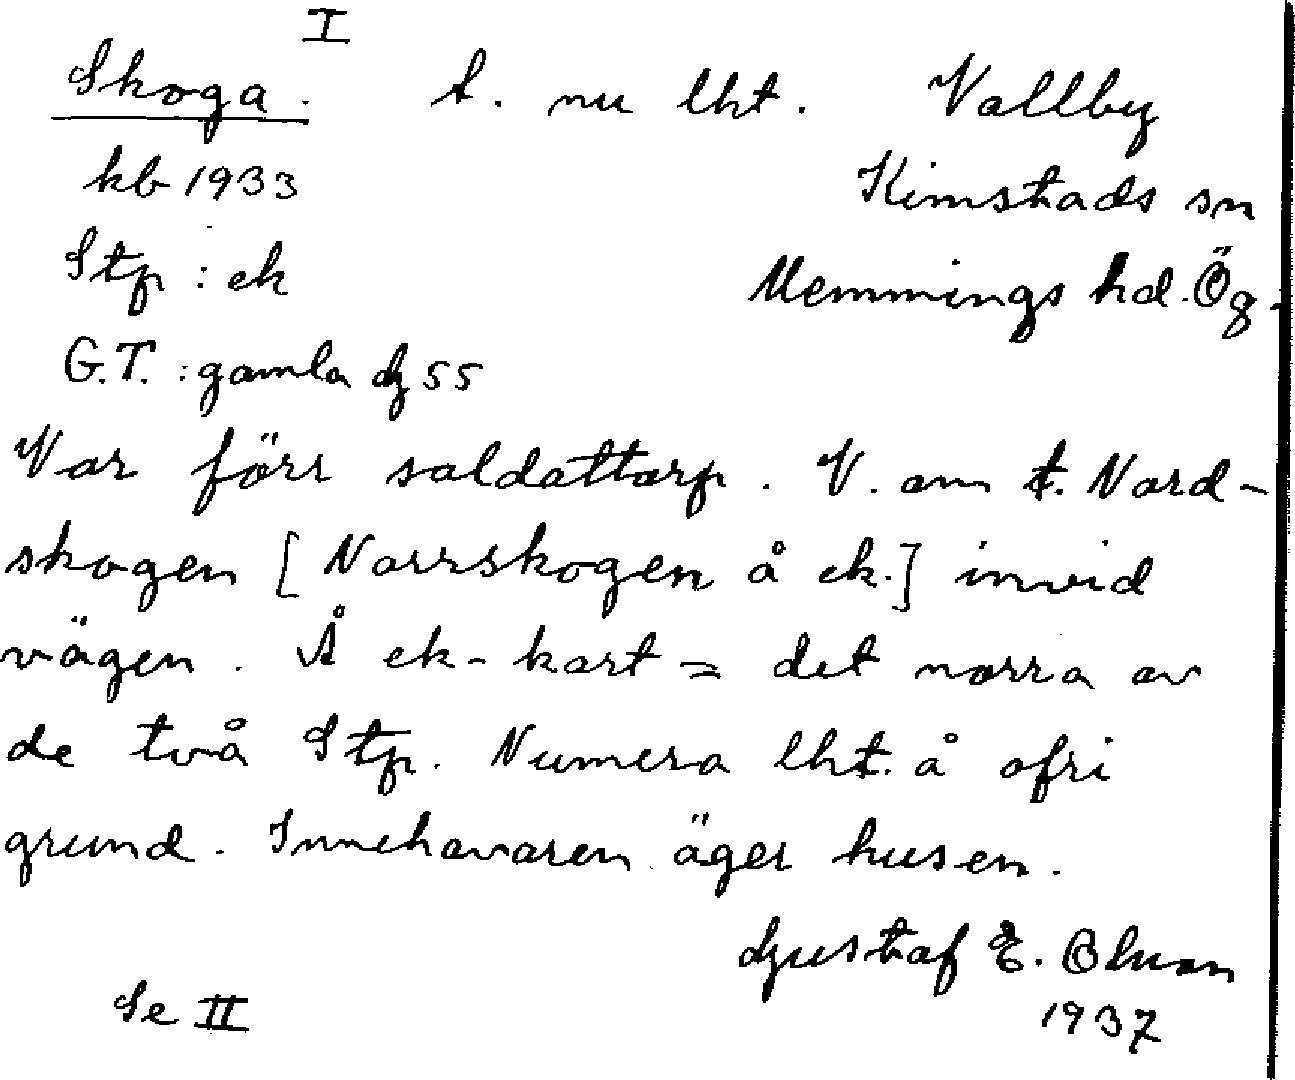 I
Skoga. t. nu lht. Vallby
kb 1933 Kimstads sn
Stp : ek Memmings hd. Ög.
G.T. : gamla 55
Var förr soldattorp. V. om t. Nord-
skogen [Norrskogen å ek.] invid
vägen. Å ek-kart = det norra av
de två Stp. Numera lht. å ofri
grund. Innehavaren äger husen.
Gustaf E. Ohlson
Se II 1937